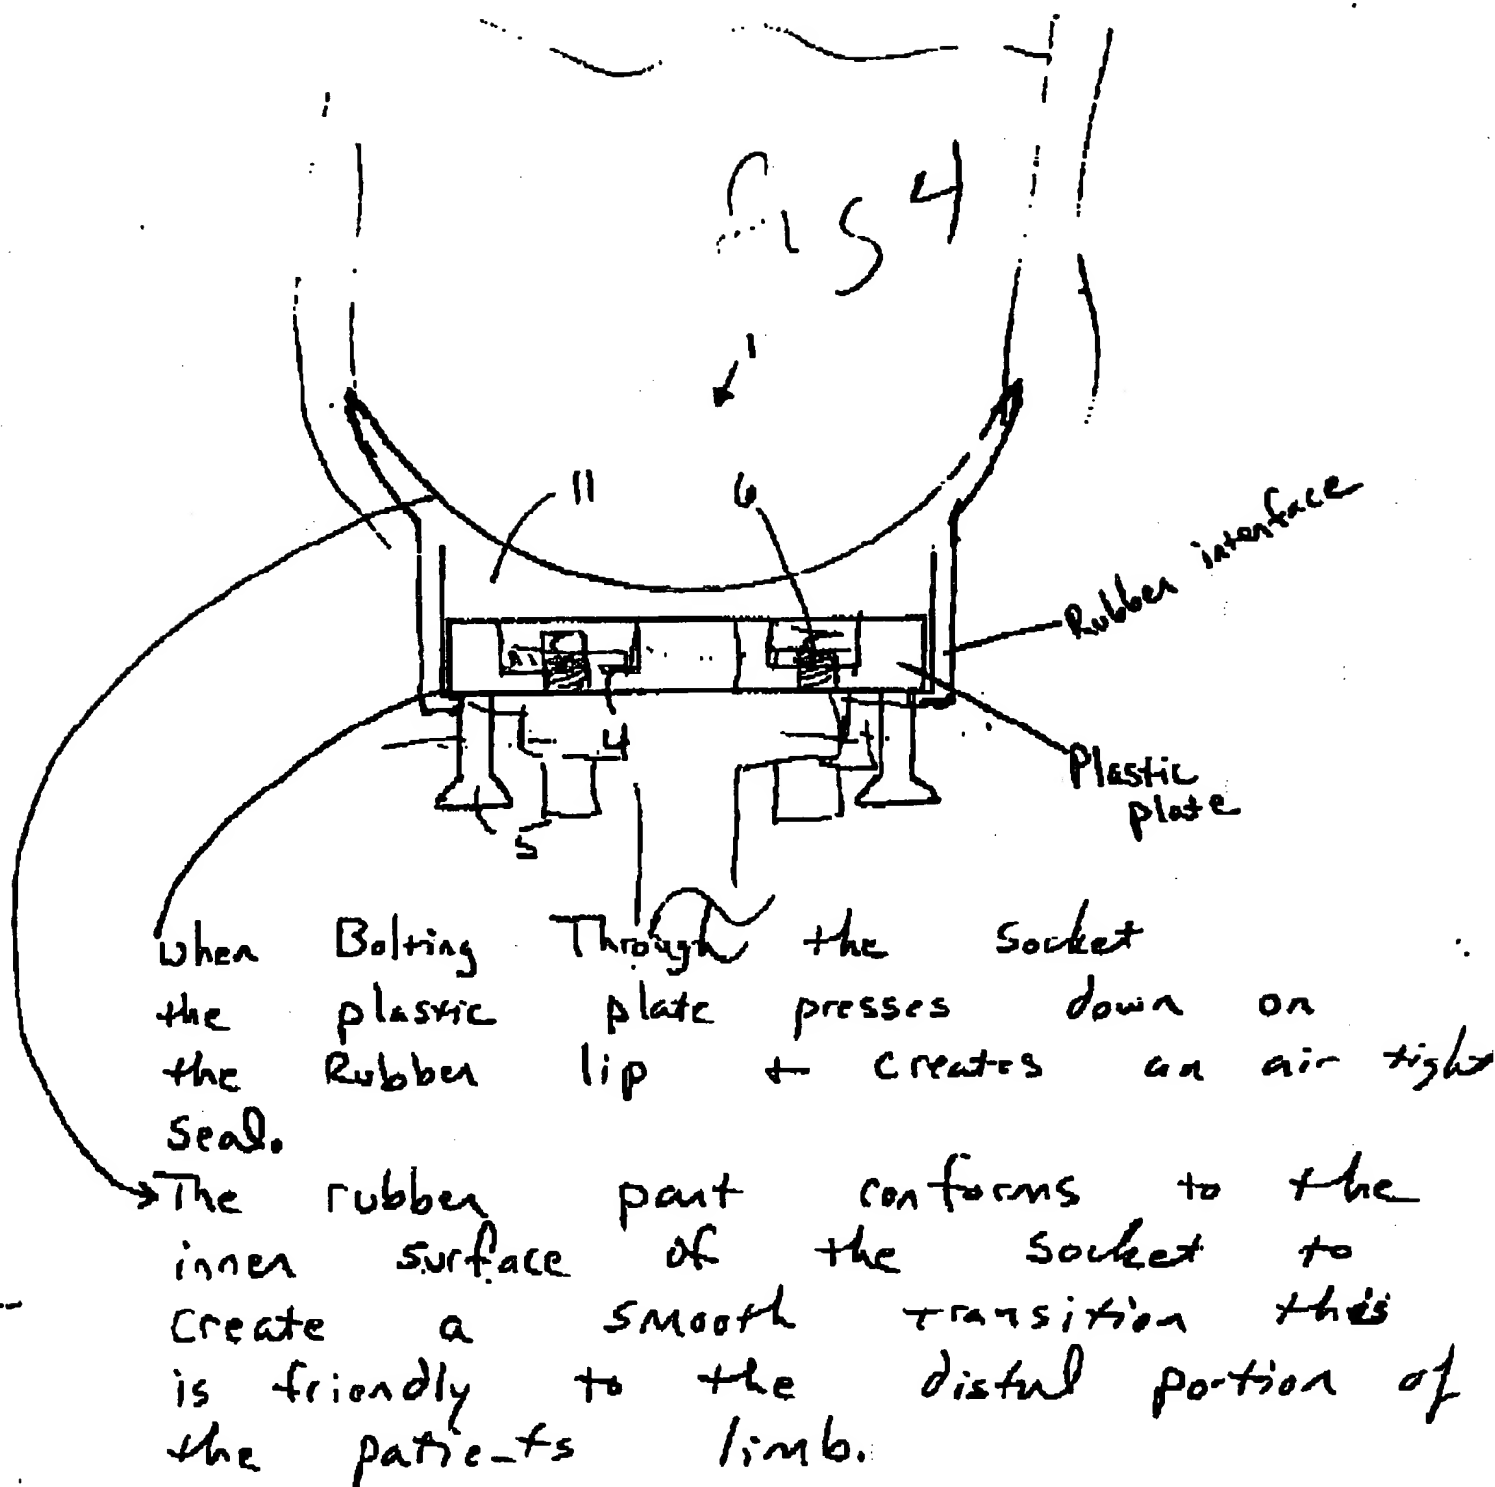 fig 4
1
11
6
Rubber interface
4
Plastic
plate
5
when Bolting Through the Socket
the plastic plate presses down on
the Rubber lip + creates an air tight
Seal.
The rubber part conforms to the
inner surface of the socket to
Create a smooth transition this
is friendly to the distal portion of
the patients limb.